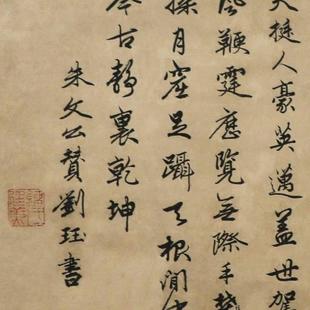 天挺人豪英邁蓋世駕
風鞭霆歷覽無際手
探月窟足躡天根閒中
今古靜裏乾坤
朱文公贊劉珏書